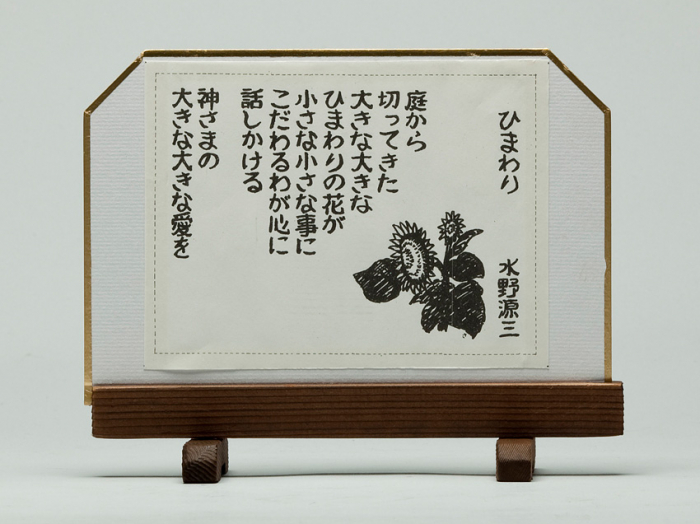 ひまわり
水野源三
庭から
切ってきた
大きな大きな
ひまわりの花が
小さな小さな事に
こだわるわが心に
話しかける
神さまの
大きな大きな愛を